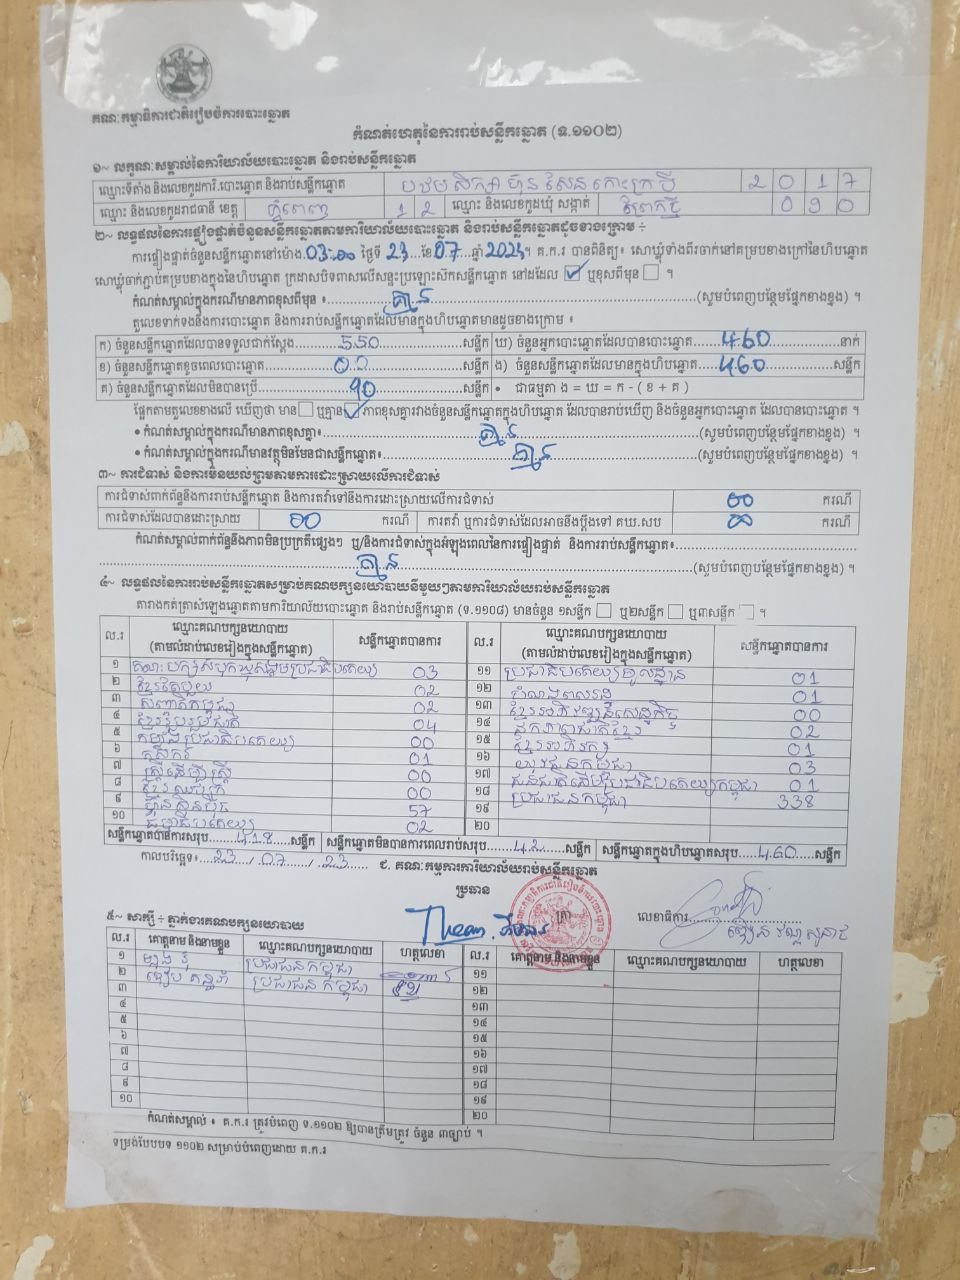 គណៈកម្មាធិការជាតិរៀបចំការបោះឆ្នោត
កំណត់ហេតុនៃការរាប់សន្លឹកឆ្នោត (ទ.១១០២)
១~ លក្ខណៈសម្គាល់នៃការិយាល័យបោះឆ្នោត និងរាប់សន្លឹកឆ្នោត
ឈ្មោះទីតាំង និងលេខកូដការិ.បោះឆ្នោត និងរាប់សន្លឹកឆ្នោត បឋមសិក្សា ហ៊ុន សែន កោះក្របី 2 0 1 7
ឈ្មោះ និងលេខកូដរាជធានី ខេត្ត ភ្នំពេញ 1 2 ឈ្មោះ និងលេខកូដឃុំ សង្កាត់ ព្រែកថ្មី 0 9 0
២~ លទ្ធផលនៃការផ្ទៀងផ្ទាត់ចំនួនសន្លឹកឆ្នោតតាមការិយាល័យបោះឆ្នោត និងរាប់សន្លឹកឆ្នោតដូចខាងក្រោម ÷
ការផ្ទៀងផ្ទាត់ចំនួនសន្លឹកឆ្នោតនៅម៉ោង 03:00 ថ្ងៃទី 23 ខែ 07 ឆ្នាំ 2023។ គ.ក.រ បានពិនិត្យ៖ សោឃ្លុំទាំងពីរចាក់នៅគម្របខាងក្រៅនៃហិបឆ្នោត
សោឃ្លុំចាក់ភ្ជាប់គម្របខាងក្នុងនៃហិបឆ្នោត ក្រដាសបិទពាសលើសន្ទះប្រឡោះស៊កសន្លឹកឆ្នោត នៅដដែល ☑ ឬខុសពីមុន ☐ ។
កំណត់សម្គាល់ក្នុងករណីមានភាពខុសពីមុន ៖ គ្មាន (សូមបំពេញបន្ថែមផ្នែកខាងខ្នង) ។
តួលេខទាក់ទងនឹងការបោះឆ្នោត និងការរាប់សន្លឹកឆ្នោតដែលមានក្នុងហិបឆ្នោតមានដូចខាងក្រោម ៖
ក) ចំនួនសន្លឹកឆ្នោតដែលបានទទួលជាក់ស្តែង 550 សន្លឹក ឃ) ចំនួនអ្នកបោះឆ្នោតដែលបានបោះឆ្នោត 460 នាក់
ខ) ចំនួនសន្លឹកឆ្នោតខូចពេលបោះឆ្នោត 00 សន្លឹក ង) ចំនួនសន្លឹកឆ្នោតដែលមានក្នុងហិបឆ្នោត 460 សន្លឹក
គ) ចំនួនសន្លឹកឆ្នោតដែលមិនបានប្រើ 90 សន្លឹក • ជាធម្មតា ង = ឃ = ក - ( ខ + គ )
ផ្អែកតាមតួលេខខាងលើ ឃើញថា មាន ☐ ឬគ្មាន ☑ ភាពខុសគ្នារវាងចំនួនសន្លឹកឆ្នោតក្នុងហិបឆ្នោត ដែលបានរាប់ឃើញ និងចំនួនអ្នកបោះឆ្នោត ដែលបានបោះឆ្នោត ។
• កំណត់សម្គាល់ក្នុងករណីមានភាពខុសគ្នា៖ គ្មាន (សូមបំពេញបន្ថែមផ្នែកខាងខ្នង) ។
• កំណត់សម្គាល់ក្នុងករណីមានវត្ថុមិនមែនជាសន្លឹកឆ្នោត៖ គ្មាន (សូមបំពេញបន្ថែមផ្នែកខាងខ្នង) ។
៣~ ការជំទាស់ និងការមិនយល់ព្រមតាមការដោះស្រាយលើការជំទាស់
ការជំទាស់ពាក់ព័ន្ធនឹងការរាប់សន្លឹកឆ្នោត និងការតវ៉ាទៅនឹងការដោះស្រាយលើការជំទាស់ 00 ករណី
ការជំទាស់ដែលបានដោះស្រាយ 00 ករណី ការតវ៉ា ឬការជំទាស់ដែលអាចនឹងប្តឹងទៅ គឃ.សប 00 ករណី
កំណត់សម្គាល់ពាក់ព័ន្ធនឹងភាពមិនប្រក្រតីផ្សេងៗ ឬ/និងការជំទាស់ក្នុងអំឡុងពេលនៃការផ្ទៀងផ្ទាត់ និងការរាប់សន្លឹកឆ្នោត៖
គ្មាន (សូមបំពេញបន្ថែមផ្នែកខាងខ្នង) ។
៤~ លទ្ធផលនៃការរាប់សន្លឹកឆ្នោតសម្រាប់គណបក្សនយោបាយនីមួយៗតាមការិយាល័យរាប់សន្លឹកឆ្នោត
តារាងកត់ត្រាសំឡេងឆ្នោតតាមការិយាល័យបោះឆ្នោត និងរាប់សន្លឹកឆ្នោត (ទ.១១០៨) មានចំនួន ១សន្លឹក ☐ ឬ២សន្លឹក ☐ ឬ៣សន្លឹក ☐ ។
ល.រ ឈ្មោះគណបក្សនយោបាយ (តាមលំដាប់លេខរៀងក្នុងសន្លឹកឆ្នោត) សន្លឹកឆ្នោតបានការ ល.រ ឈ្មោះគណបក្សនយោបាយ (តាមលំដាប់លេខរៀងក្នុងសន្លឹកឆ្នោត) សន្លឹកឆ្នោតបានការ
១ គណៈបក្សសំបុកឃ្មុំសង្គមប្រជាធិបតេយ្យ 03 ១១ ប្រជាធិបតេយ្យមូលដ្ឋាន 01
២ ខ្មែរតែមួយ 02 ១២ កំលាំងពលរដ្ឋ 01
៣ សញ្ជាតិកម្ពុជា 02 ១៣ ខ្មែរអភិវឌ្ឍន៍សេដ្ឋកិច្ច 00
៤ ខ្មែររួបរួមជាតិ 04 ១៤ ឯកភាពជាតិខ្មែរ 02
៥ កម្ពុជាប្រជាធិបតេយ្យ 00 ១៥ ខ្មែរអភិរក្ស 01
៦ កសិករ 01 ១៦ យុវជនកម្ពុជា 03
៧ ស្ត្រីដើម្បីស្ត្រី 00 ១៧ ជនជាតិដើមប្រជាធិបតេយ្យកម្ពុជា 01
៨ ខ្មែរឈប់ក្រ 00 ១៨ ប្រជាជនកម្ពុជា 338
៩ ហ្វ៊ុនស៊ិនប៉ិច 57 ១៩
១០ ធម្មាធិបតេយ្យ 02 ២០
សន្លឹកឆ្នោតបានការសរុប 418 សន្លឹក សន្លឹកឆ្នោតមិនបានការពេលរាប់សរុប 42 សន្លឹក សន្លឹកឆ្នោតក្នុងហិបឆ្នោតសរុប 460 សន្លឹក
កាលបរិច្ឆេទ៖ 23 / 07 / 23 ជ. គណៈកម្មការការិយាល័យរាប់សន្លឹកឆ្នោត
ប្រធាន
ត្រា លេខាធិការ
Thean
៥~ សាក្សី ÷ ភ្នាក់ងារគណបក្សនយោបាយ
ល.រ គោត្តនាម និងនាមខ្លួន ឈ្មោះគណបក្សនយោបាយ ហត្ថលេខា ល.រ គោត្តនាម និងនាមខ្លួន ឈ្មោះគណបក្សនយោបាយ ហត្ថលេខា
១ ប្រជាជនកម្ពុជា ១១
២ ប្រជាជនកម្ពុជា ១២
៣ ១៣
៤ ១៤
៥ ១៥
៦ ១៦
៧ ១៧
៨ ១៨
៩ ១៩
១០ ២០
កំណត់សម្គាល់ ៖ គ.ក.រ ត្រូវបំពេញ ទ.១១០២ ឱ្យបានត្រឹមត្រូវ ចំនួន ៣ច្បាប់ ។
ទម្រង់បែបបទ ១១០២ សម្រាប់បំពេញដោយ គ.ក.រ